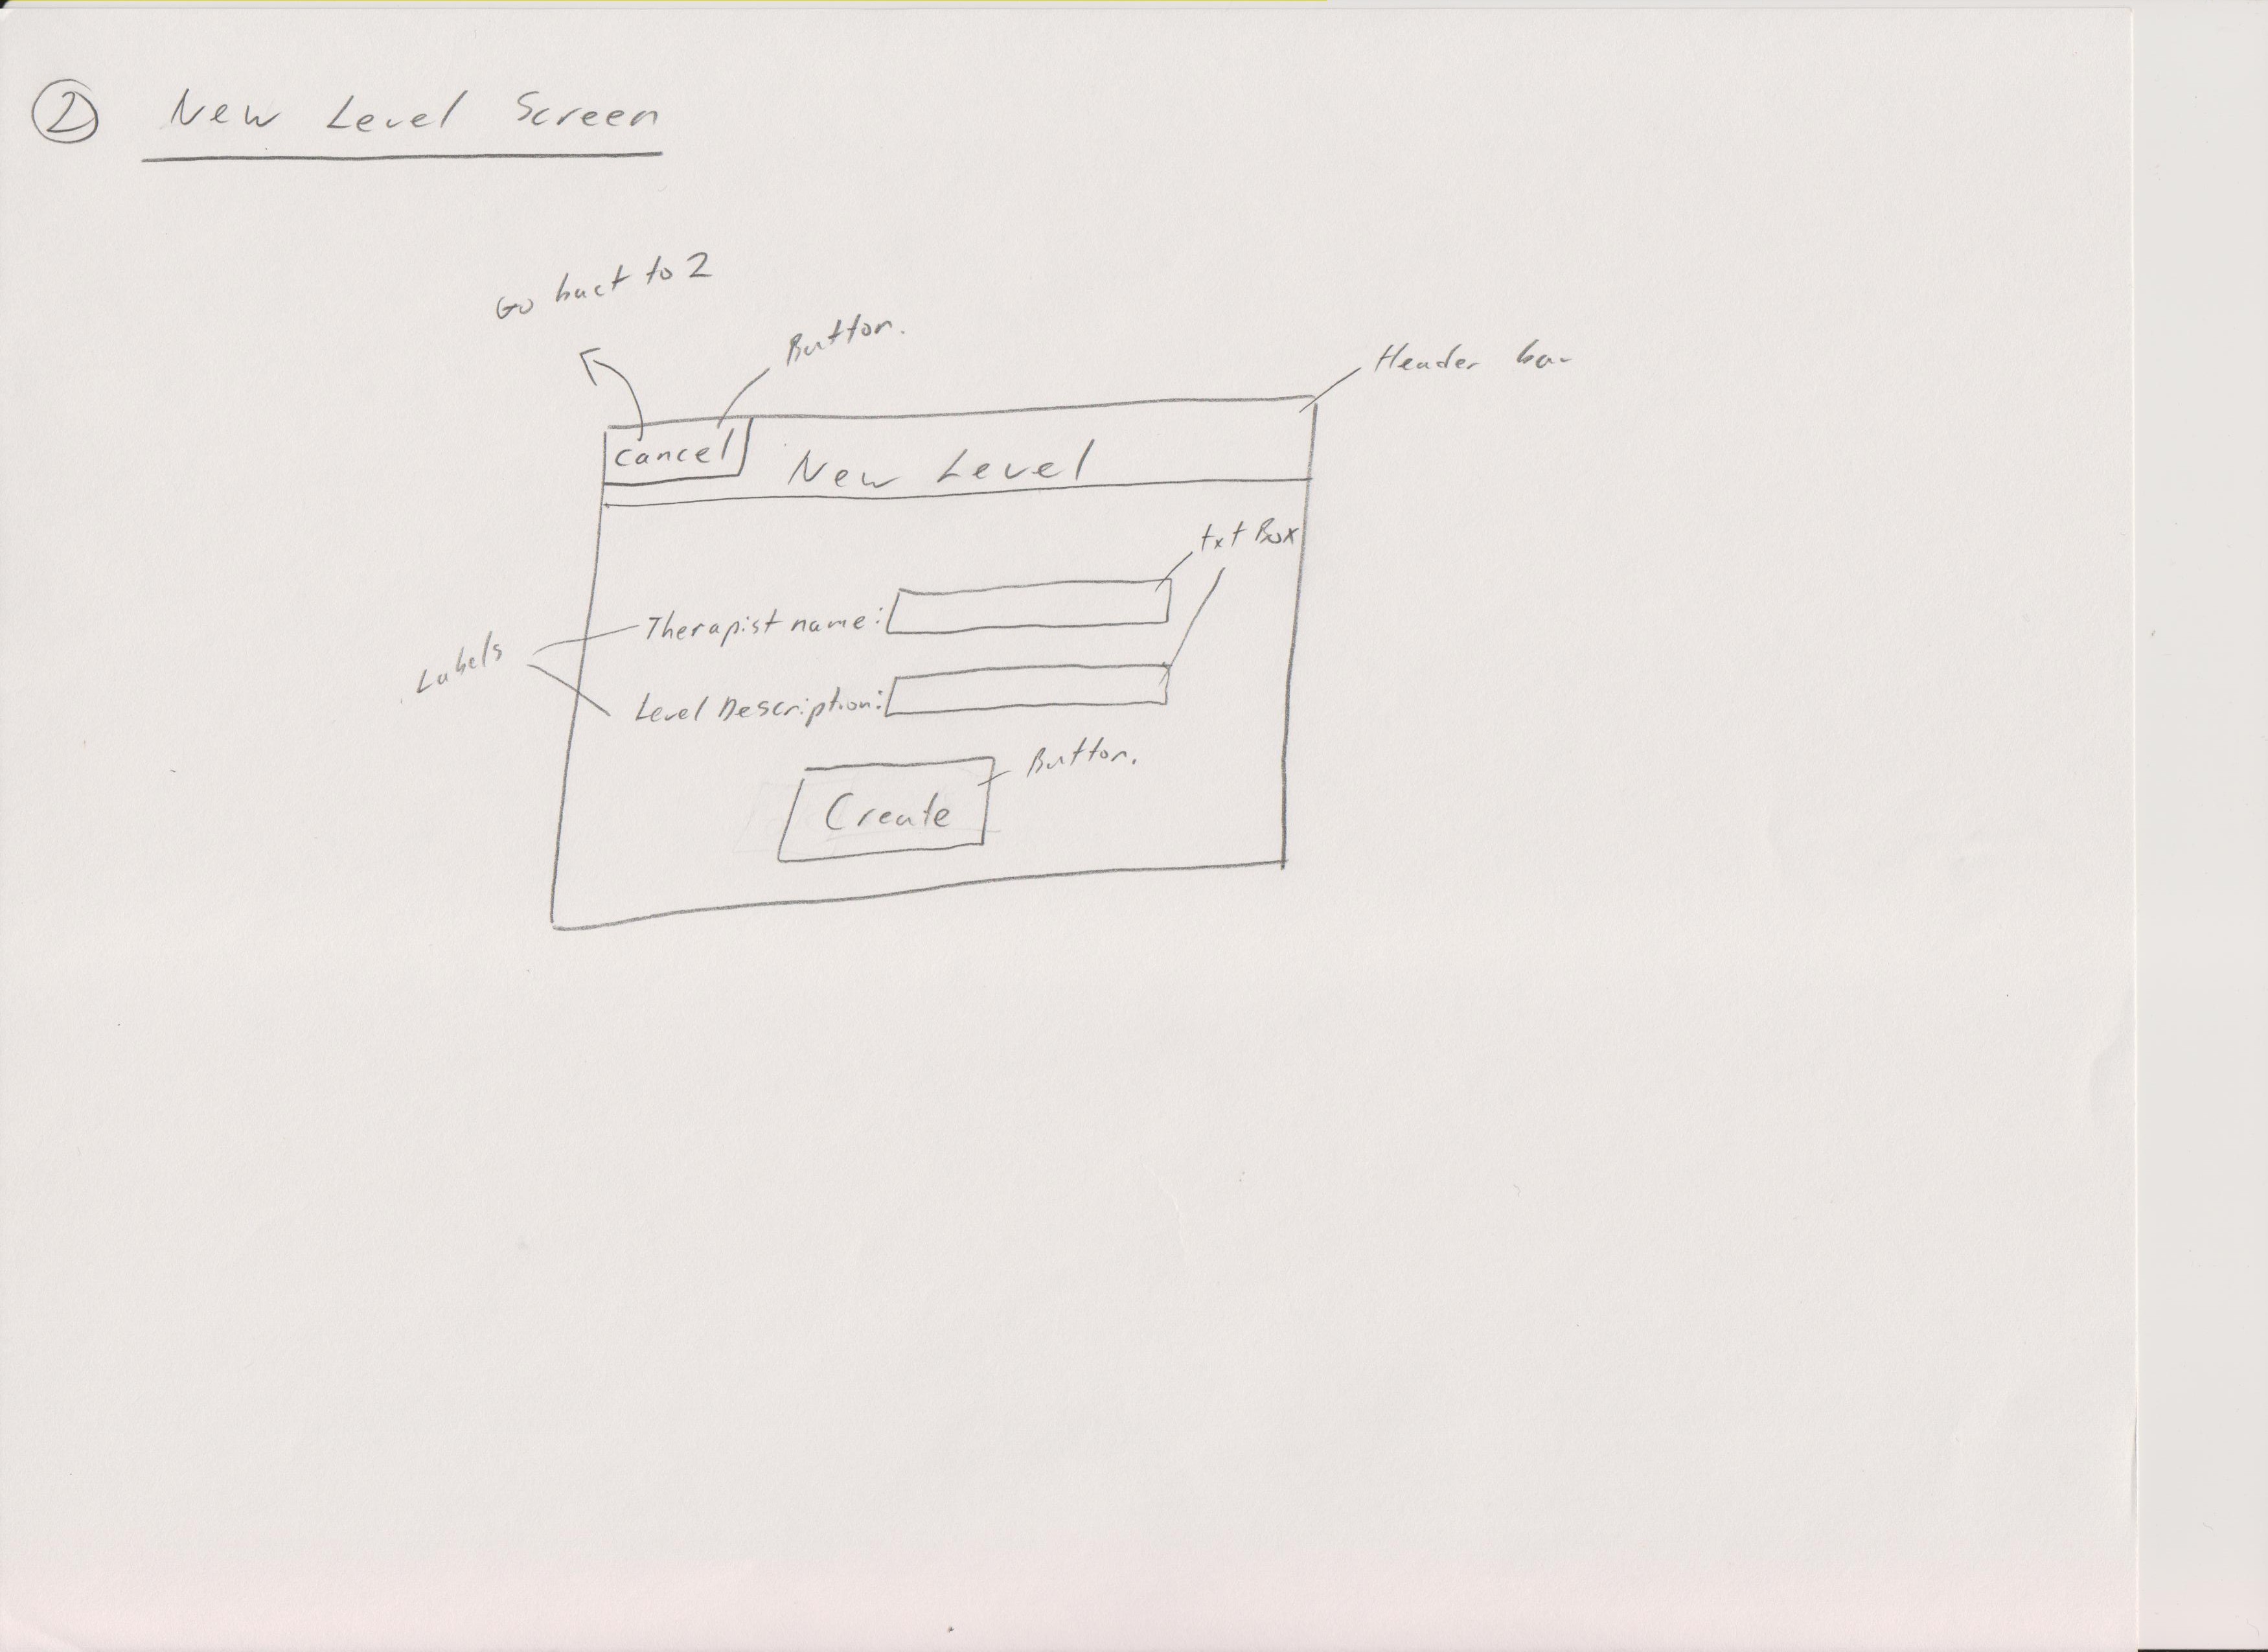 2 New Level Screen
Go back to 2
Button.
Header bar
Cancel
New Level
txt Box
Therapist name:
Labels
Level Description:
Button.
Create